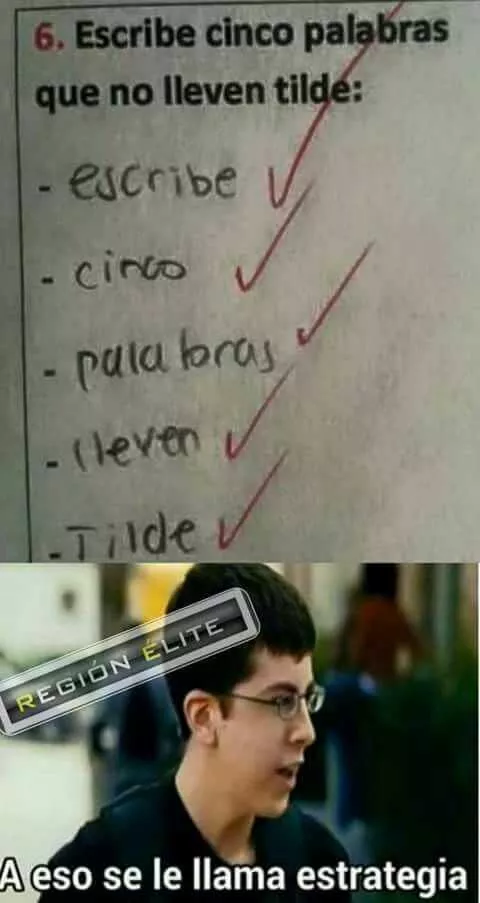 6. Escribe cinco palabras
que no lleven tilde:
- escribe
- cinco
- palabras
- lleven
- Tilde
REGIÓN ÉLITE
A eso se le llama estrategia